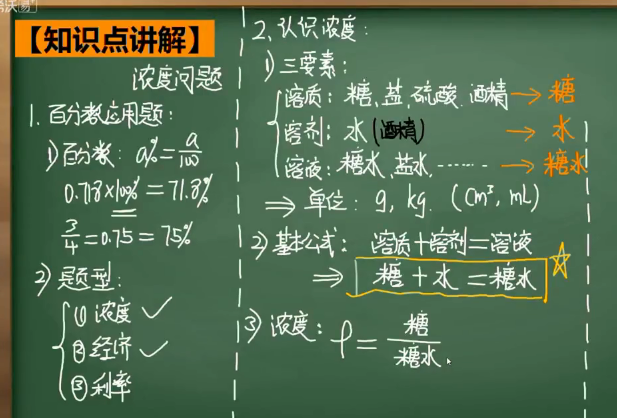 【知识点讲解】
浓度问题
1. 百分数应用题:
1) 百分数: a% = a/100
0.718×100% = 71.8%
3/4 = 0.75 = 75%
2) 题型:
① 浓度 ✓
② 经济 ✓
③ 利率
2. 认识浓度:
1) 三要素:
溶质: 糖、盐、硫酸、酒精 → 糖
溶剂: 水 (酒精) → 水
溶液: 糖水、盐水、…… → 糖水
⇒ 单位: g, kg. (cm³, mL)
2) 基本公式: 溶质+溶剂=溶液
⇒ 糖 + 水 = 糖水 ☆
3) 浓度: ρ = 糖/糖水